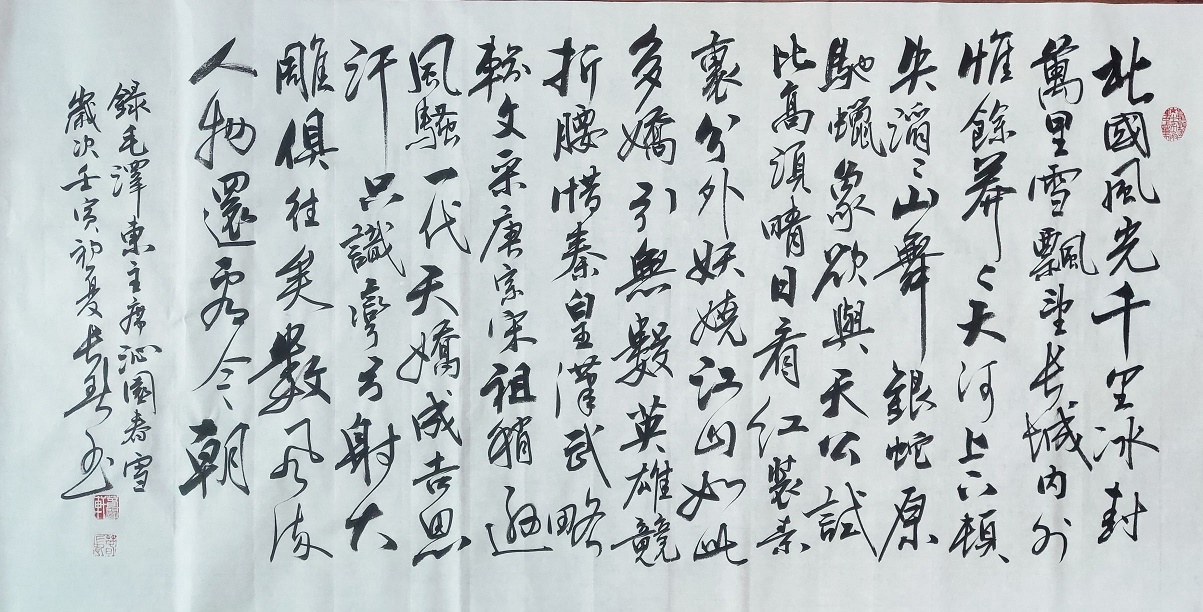 北國風光千里冰封
萬里雪飄望長城内外
惟餘莽〻大河上下頓
失滔〻山舞銀蛇原
馳蠟象欲與天公試
比高須晴日看紅裝素
裹分外妖嬈江山如此
多嬌引無數英雄競
折腰惜秦皇漢武略
輸文采唐宗宋祖稍遜
風騷一代天嬌成吉思
汗只識彎弓射大
雕俱往矣數風流
人物還看今朝
錄毛澤東主席沁園春雪
歲次壬寅初夏長